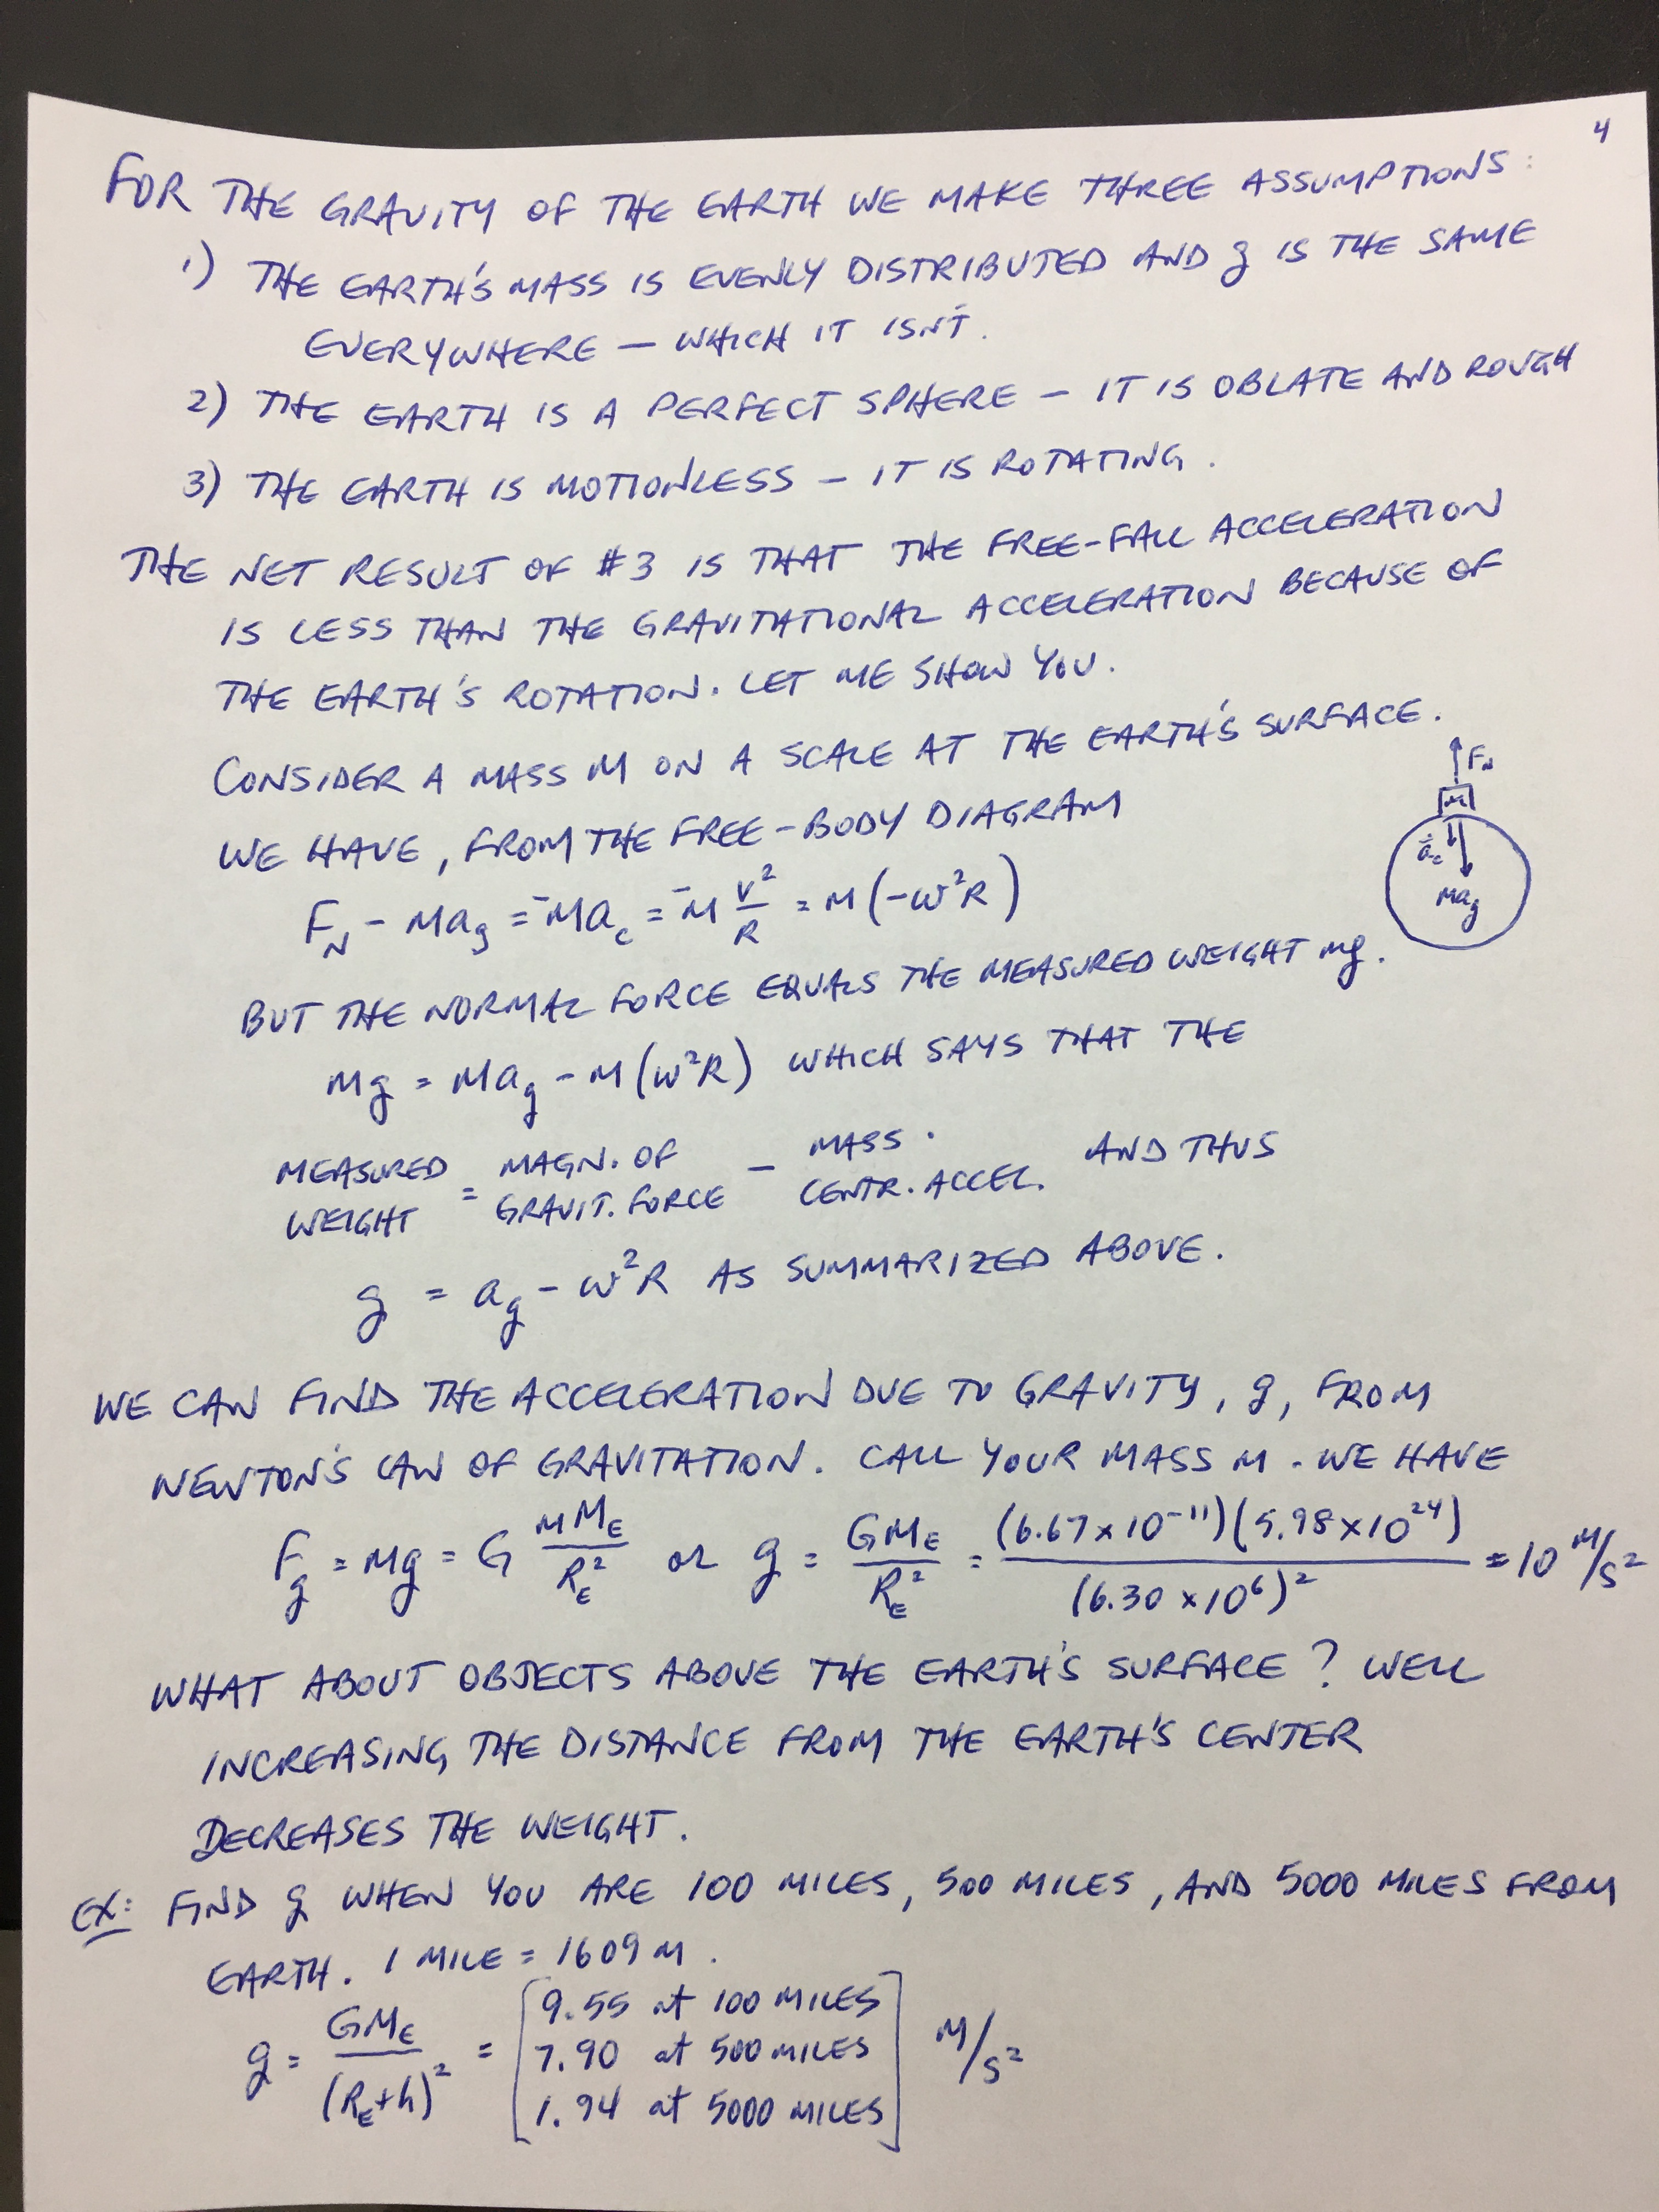 4
FOR THE GRAVITY OF THE EARTH WE MAKE THREE ASSUMPTIONS:
1) THE EARTH'S MASS IS EVENLY DISTRIBUTED AND g IS THE SAME
EVERYWHERE — WHICH IT ISN'T.
2) THE EARTH IS A PERFECT SPHERE — IT IS OBLATE AND ROUGH
3) THE EARTH IS MOTIONLESS — IT IS ROTATING.
THE NET RESULT OF #3 IS THAT THE FREE-FALL ACCELERATION
IS LESS THAN THE GRAVITATIONAL ACCELERATION BECAUSE OF
THE EARTH'S ROTATION. LET ME SHOW YOU.
CONSIDER A MASS M ON A SCALE AT THE EARTH'S SURFACE.
WE HAVE, FROM THE FREE-BODY DIAGRAM
F_N
M
a_c
Ma_g
F_N - Ma_g = -Ma_c = -M V²/R = M(-ω²R)
BUT THE NORMAL FORCE EQUALS THE MEASURED WEIGHT mg.
Mg = Ma_g - M(ω²R) WHICH SAYS THAT THE
MEASURED WEIGHT = MAGN. OF GRAVIT. FORCE - MASS · CENTR. ACCEL. AND THUS
g = a_g - ω²R AS SUMMARIZED ABOVE.
WE CAN FIND THE ACCELERATION DUE TO GRAVITY, g, FROM
NEWTON'S LAW OF GRAVITATION. CALL YOUR MASS M. WE HAVE
F_g = Mg = G MM_E/R_E² or g = GM_E/R_E² = (6.67×10⁻¹¹)(5.98×10²⁴)/(6.30×10⁶)² = 10 M/S²
WHAT ABOUT OBJECTS ABOVE THE EARTH'S SURFACE? WELL
INCREASING THE DISTANCE FROM THE EARTH'S CENTER
DECREASES THE WEIGHT.
EX: FIND g WHEN YOU ARE 100 MILES, 500 MILES, AND 5000 MILES FROM
EARTH. 1 MILE = 1609 M.
g = GM_E/(R_E+h)² = [9.55 at 100 MILES
7.90 at 500 MILES
1.94 at 5000 MILES] M/S²